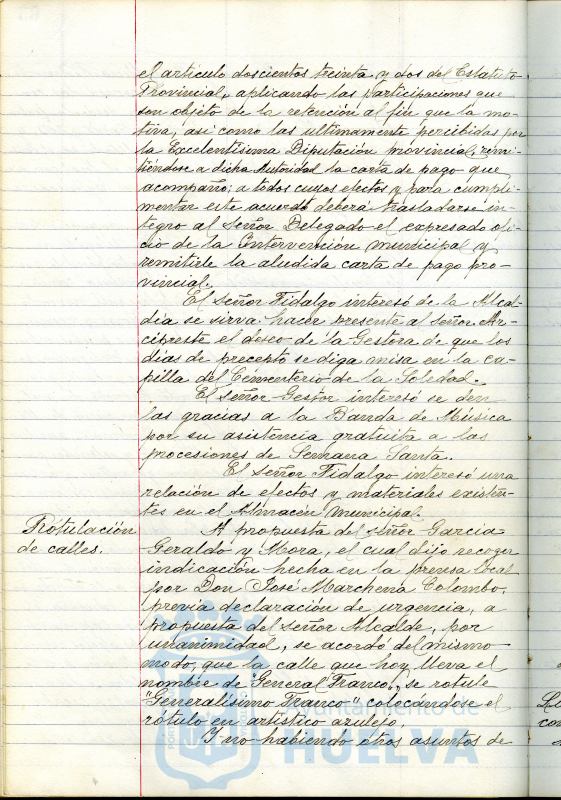 el artículo doscientos treinta y dos del Estatuto
Provincial, aplicando las participaciones que
son objeto de la retención al fin que la mo-
tiva, así como las ultimamente percibidas por
la Excelentísima Diputación provincial, remi-
tiéndose a dicha Autoridad la carta de pago que
acompaño; a todos cuyos efectos y para cumpli-
mentar este acuerdo deberá trasladarse ín-
tegro al señor Delegado el expresado ofi-
cio de la Intervención municipal y
remitirle la aludida carta de pago pro-
vincial.
El señor Fidalgo interesó de la Alcal-
día se sirva hacer presente al señor Ar-
cipreste el deseo de la Gestora de que los
días de precepto se diga misa en la ca-
pilla del Cementerio de la Soledad.
El señor Gestor interesó se den
las gracias a la Banda de Música
por su asistencia gratuita a las
procesiones de Semana Santa.
El señor Fidalgo interesó una
relación de efectos y materiales existen-
tes en el Almacén municipal.
Rotulación
de calles.
A propuesta del señor García
Geraldo y Mora, el cual dijo recoger
indicación hecha en la prensa local
por Don José Marchena Colombo,
previa declaración de urgencia, a
propuesta del señor Alcalde, por
unanimidad, se acordó del mismo
modo, que la calle que hoy lleva el
nombre de "General Franco", se rotule
"Generalísimo Franco" colocándose el
rótulo en artístico azulejo.
Y no habiendo otros asuntos de
Ayuntamiento de
HUELVA